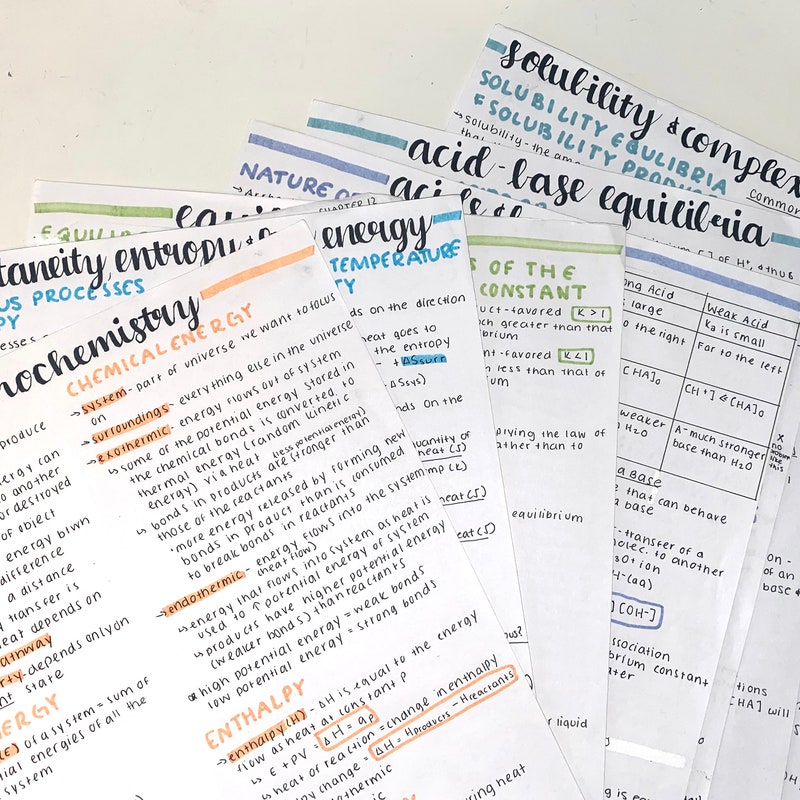 solubility & complex
SOLUBILITY EQULIBRIA
& SOLUBILITY PRODU
→ solubility - the am
Common
acid-base equilibria
NATURE OF
CHAPTER 12
EQUILIB
taneity, entropy, & energy
US PROCESSES
PY
TEMPERATURE
TY
nds on the direction
heat goes to
the entropy
+ ΔSsurr
ΔSsys)
nds on the
quantity of
heat (J)
mp (K)
heat (J)
heat (J)
ous?
or liquid
S OF THE
CONSTANT
uct-favored K > 1
ch greater than that
brium
nt-favored K < 1
less than that of
um
plying the law of
rather than to
equilibrium
ong Acid
Weak Acid
large
ka is small
to the right
Far to the left
[HA]₀
[H+] ≪ [HA]₀
weaker
H2O
A- much stronger
base than H2O
a Base
e that can behave
a base
-transfer of a
molec. to another
H3O+ ion
H-(aq)
][OH-]
ssociation
ibrium constant
ater
tions
[HA] will
nochemistry
CHEMICAL ENERGY
→ system - part of universe we want to focus
on
→ surroundings - everything else in the universe
→ exothermic - energy flows out of system
↳ some of the potential energy stored in
the chemical bonds is converted to
thermal energy (random kinetic
energy) via heat (less potential energy)
↳ bonds in products are stronger than
those of the reactants
· more energy released by forming new
bonds in product than is consumed
to break bonds in reactants
→ endothermic - energy flows into the system
(heat flow)
↳ energy that flows into system as heat is
used to ↑ potential energy of system
↳ products have higher potential energy
(weaker bonds) than reactants
* high potential energy = weak bonds
low potential energy = strong bonds
ENTHALPY
→ enthalpy (H) - ΔH is equal to the energy
flow as heat at constant P
↳ E + PV = ΔH = qp
↳ heat of reaction = change in enthalpy
py change = ΔH = Hproducts - Hreactants
othermic
uring heat
produce
ergy can
o another
or destroyed
of object
energy btwn
difference
a distance
transfer is
heat depends on
athway
rty - depends only on
nt state
ERGY
(E) of a system = sum of
tial energies of all the
system